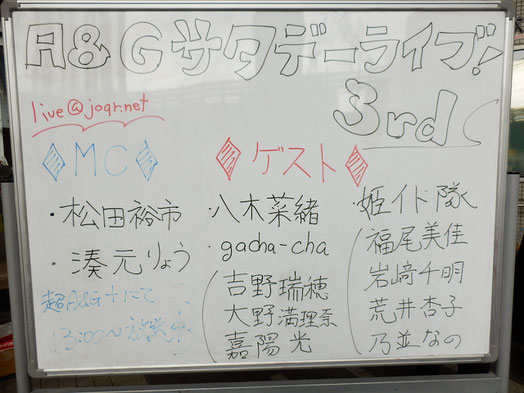 A&Gサタデーライブ!
3rd
live@joqr.net
MC
・松田裕市
・湊元りょう
超A&G+にて
13:00〜
ゲスト
・八木菜緒
・gacha-cha
吉野瑞穂
大野満理奈
嘉陽光
・姫イド隊
福尾美佳
岩﨑千明
荒井杏子
乃並なの